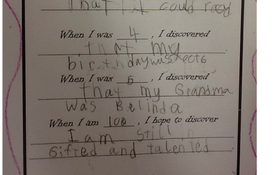 that I could read
When I was 4, I discovered
that my
birthday was Oct 6
When I was 6, I discovered
that my Grandma
was Belinda
When I am 100, I hope to discover
I am still
Gifted and talented